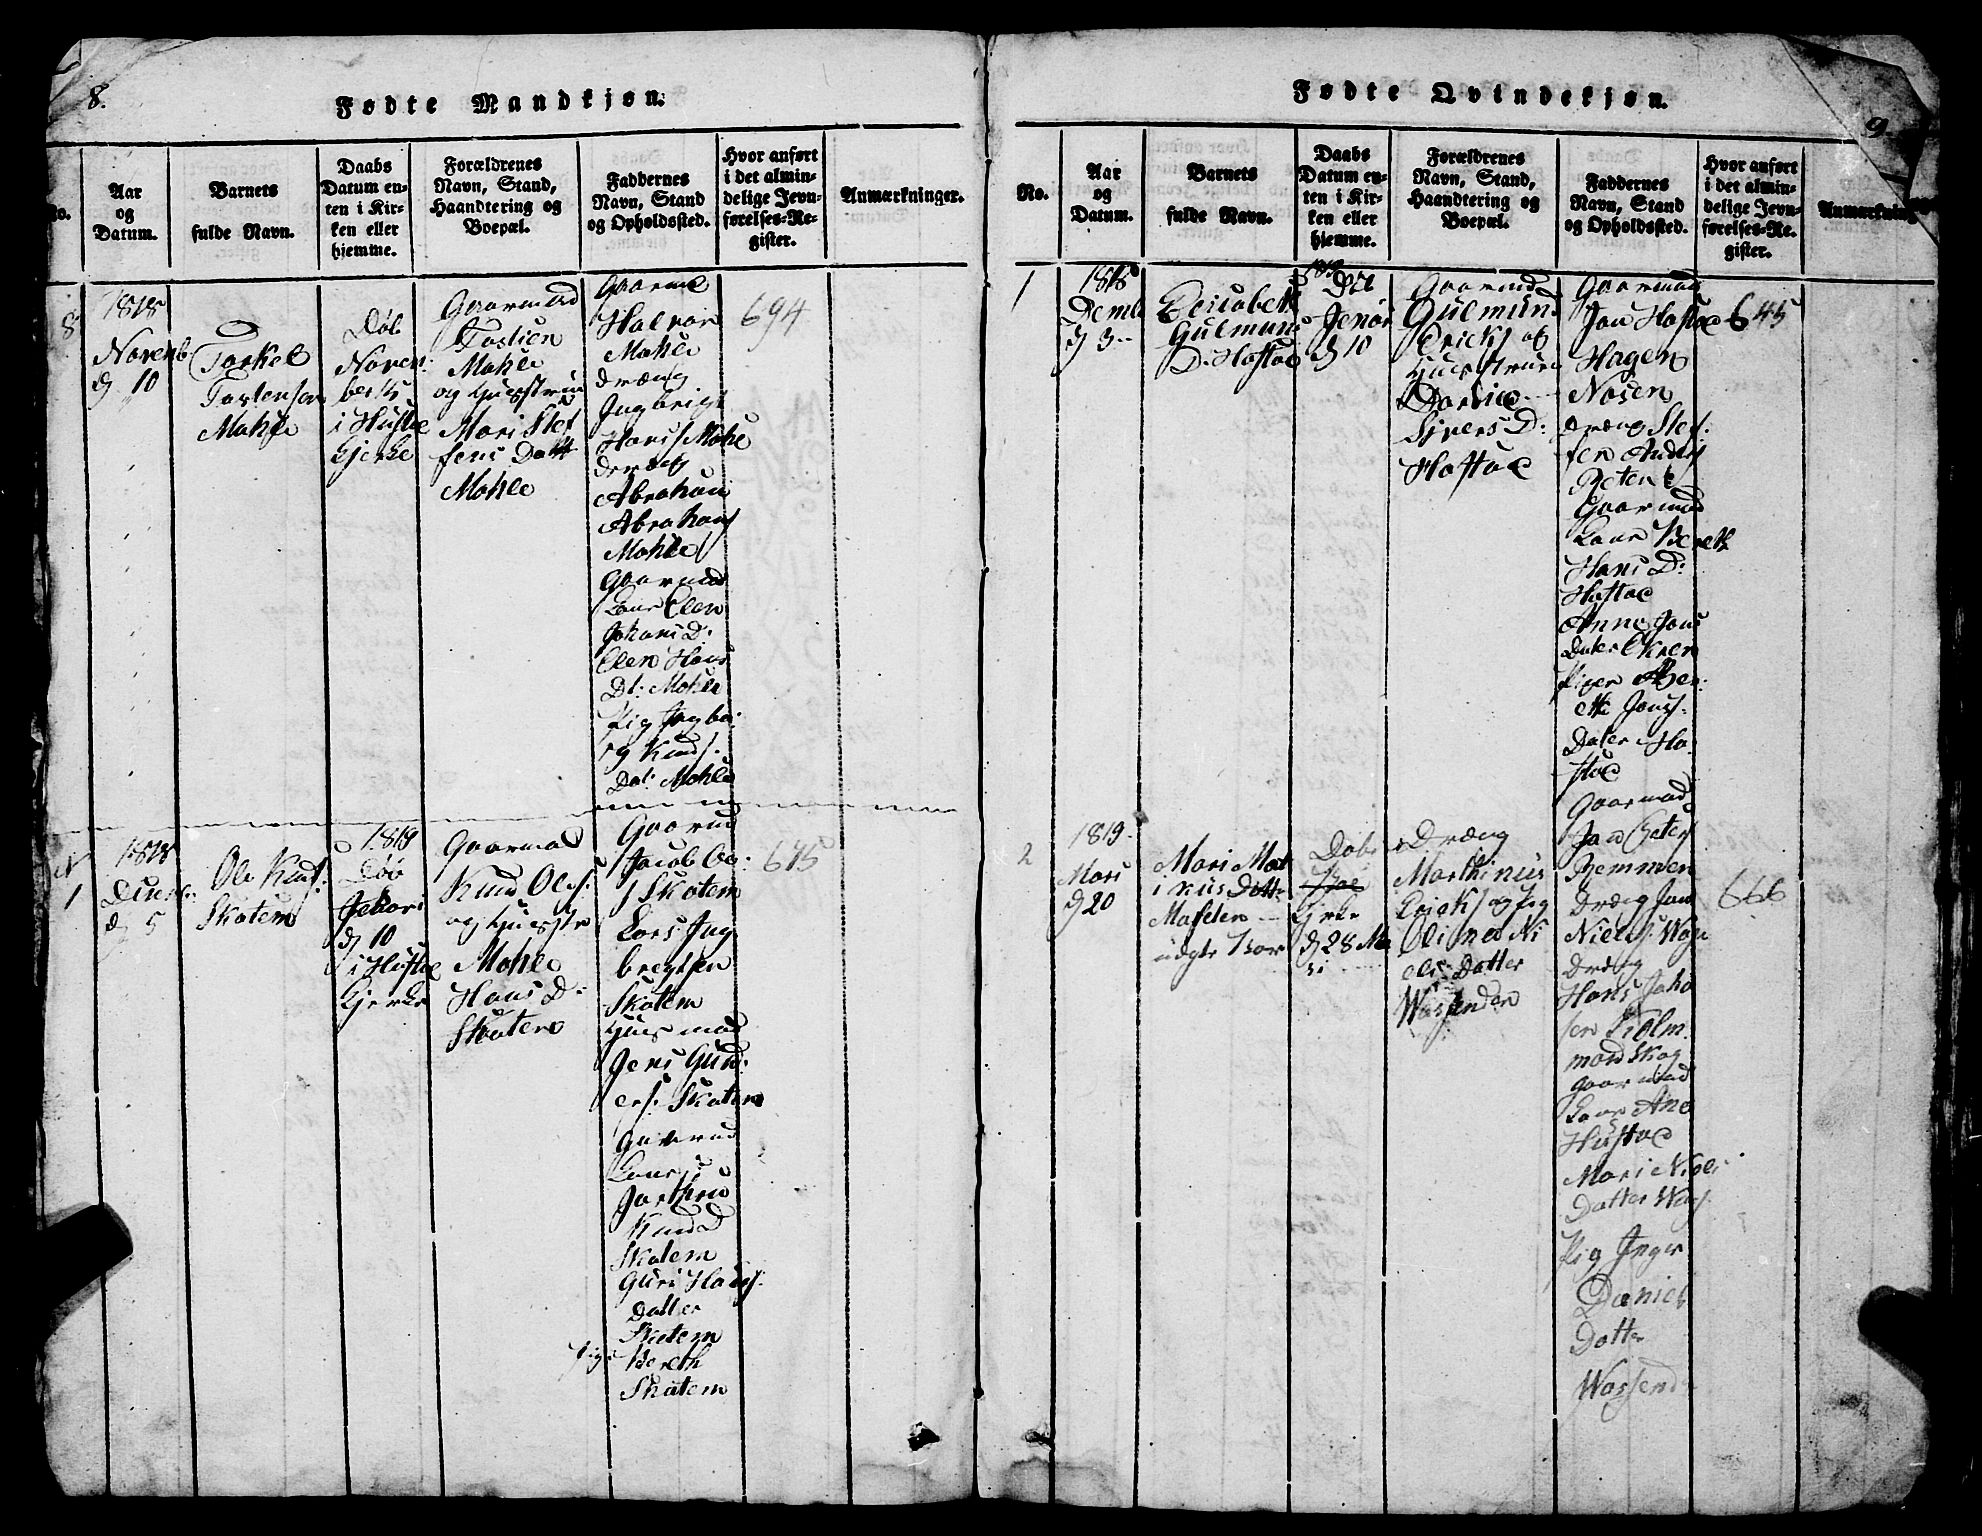 8.
Fødte Mandkjøn.
No.
Aar
og
Datum.
Barnets
fulde Navn.
Daabs
Datum en-
ten i Kir-
ken eller
hjemme.
Forældrenes
Navn, Stand,
Haandtering og
Boepæl.
Faddernes
Navn, Stand
og Opholdssted.
Hvor anført
i det almin-
delige Jevn-
førelses-Re-
gister.
Anmærkninger.
8
1818
Novenb
d 10
Torkel
Tostensen
Mahle
Døb
Novem
ber 15
i Hustae
Kjerke
Gaarmad
Tostien
Mahle
og Huusstru
Mari Stef
fens Datt
Mahle
Gaarmd
Halvor
Mahle
Dræng
Ingbrigt
Hans Mahle
Dræng
Abraham
Abrahams
Mahle
Gaarmad
Kone Elen
Johans D:
Elen Hans
Dt: Mahle
Pig Ingbor
g Knuds.
Dat: Mahle
1
1818
d 5
Ole Knuds.
Skotem
1819
Døb
d 10
i Hustae
Kjerke
Gaarmad
Knud Ols.
og Huusstr
Mahle
Hans D:
Skotem
Gaarmd
Jacob
Skotem
Lars Ing
bregtsen
Skotem
Huusmad
Jens Gud
ers. Skotem
Gaarmd
Kone
Knuds D
Skotem
Guri Hans.
Datter
Skotem
Pig Bereth
Skotem
694
645
9.
Fødte Qvindekjøn.
No.
Aar
og
Datum.
Barnets
fulde Navn.
Daabs
Datum en-
ten i Kir-
ken eller
hjemme.
Forældrenes
Navn, Stand,
Haandtering og
Boepæl.
Faddernes
Navn, Stand
og Opholdssted.
Hvor anført
i det almin-
delige Jevn-
førelses-Re-
gister.
Anmærkning
1
1818
Demb
d 3
Elisabeth
Gulmuns
D: Hostae
1819
Jenør
d 10
Gaarmd
Gulmund
Ericks og
Huusstrue
Dordie
Sivers D:
Hostae
Gaarmad
Jon Hostae
Hagen
Nosen
Dræng Stef
fen Anders
Gaarmad
Kone Bereth
Hans D:
Hostae
Anne Jons
Dater
Piger Ber
eth Jons.
Dater Ho
stae
645
2
1819
Mars
d 20
Mari Mat
inus Datt
ægte Bar
Døbt
Kjerke
d 28 Ma
rs
Dræng
Marthinus
Ericks og Pig
Olina Ni
els Datter
Wassenden
Gaarmad
Jon Peters
Remmen
Dræng Jon
Niels.
Dræng
Hans Jako
sen Kiolm
mordskog
Gaarmad
Kone Ane
Hustae
Mari Niels
Datter Was.
Pig Inger
Daniels
Datter
Wassend
666